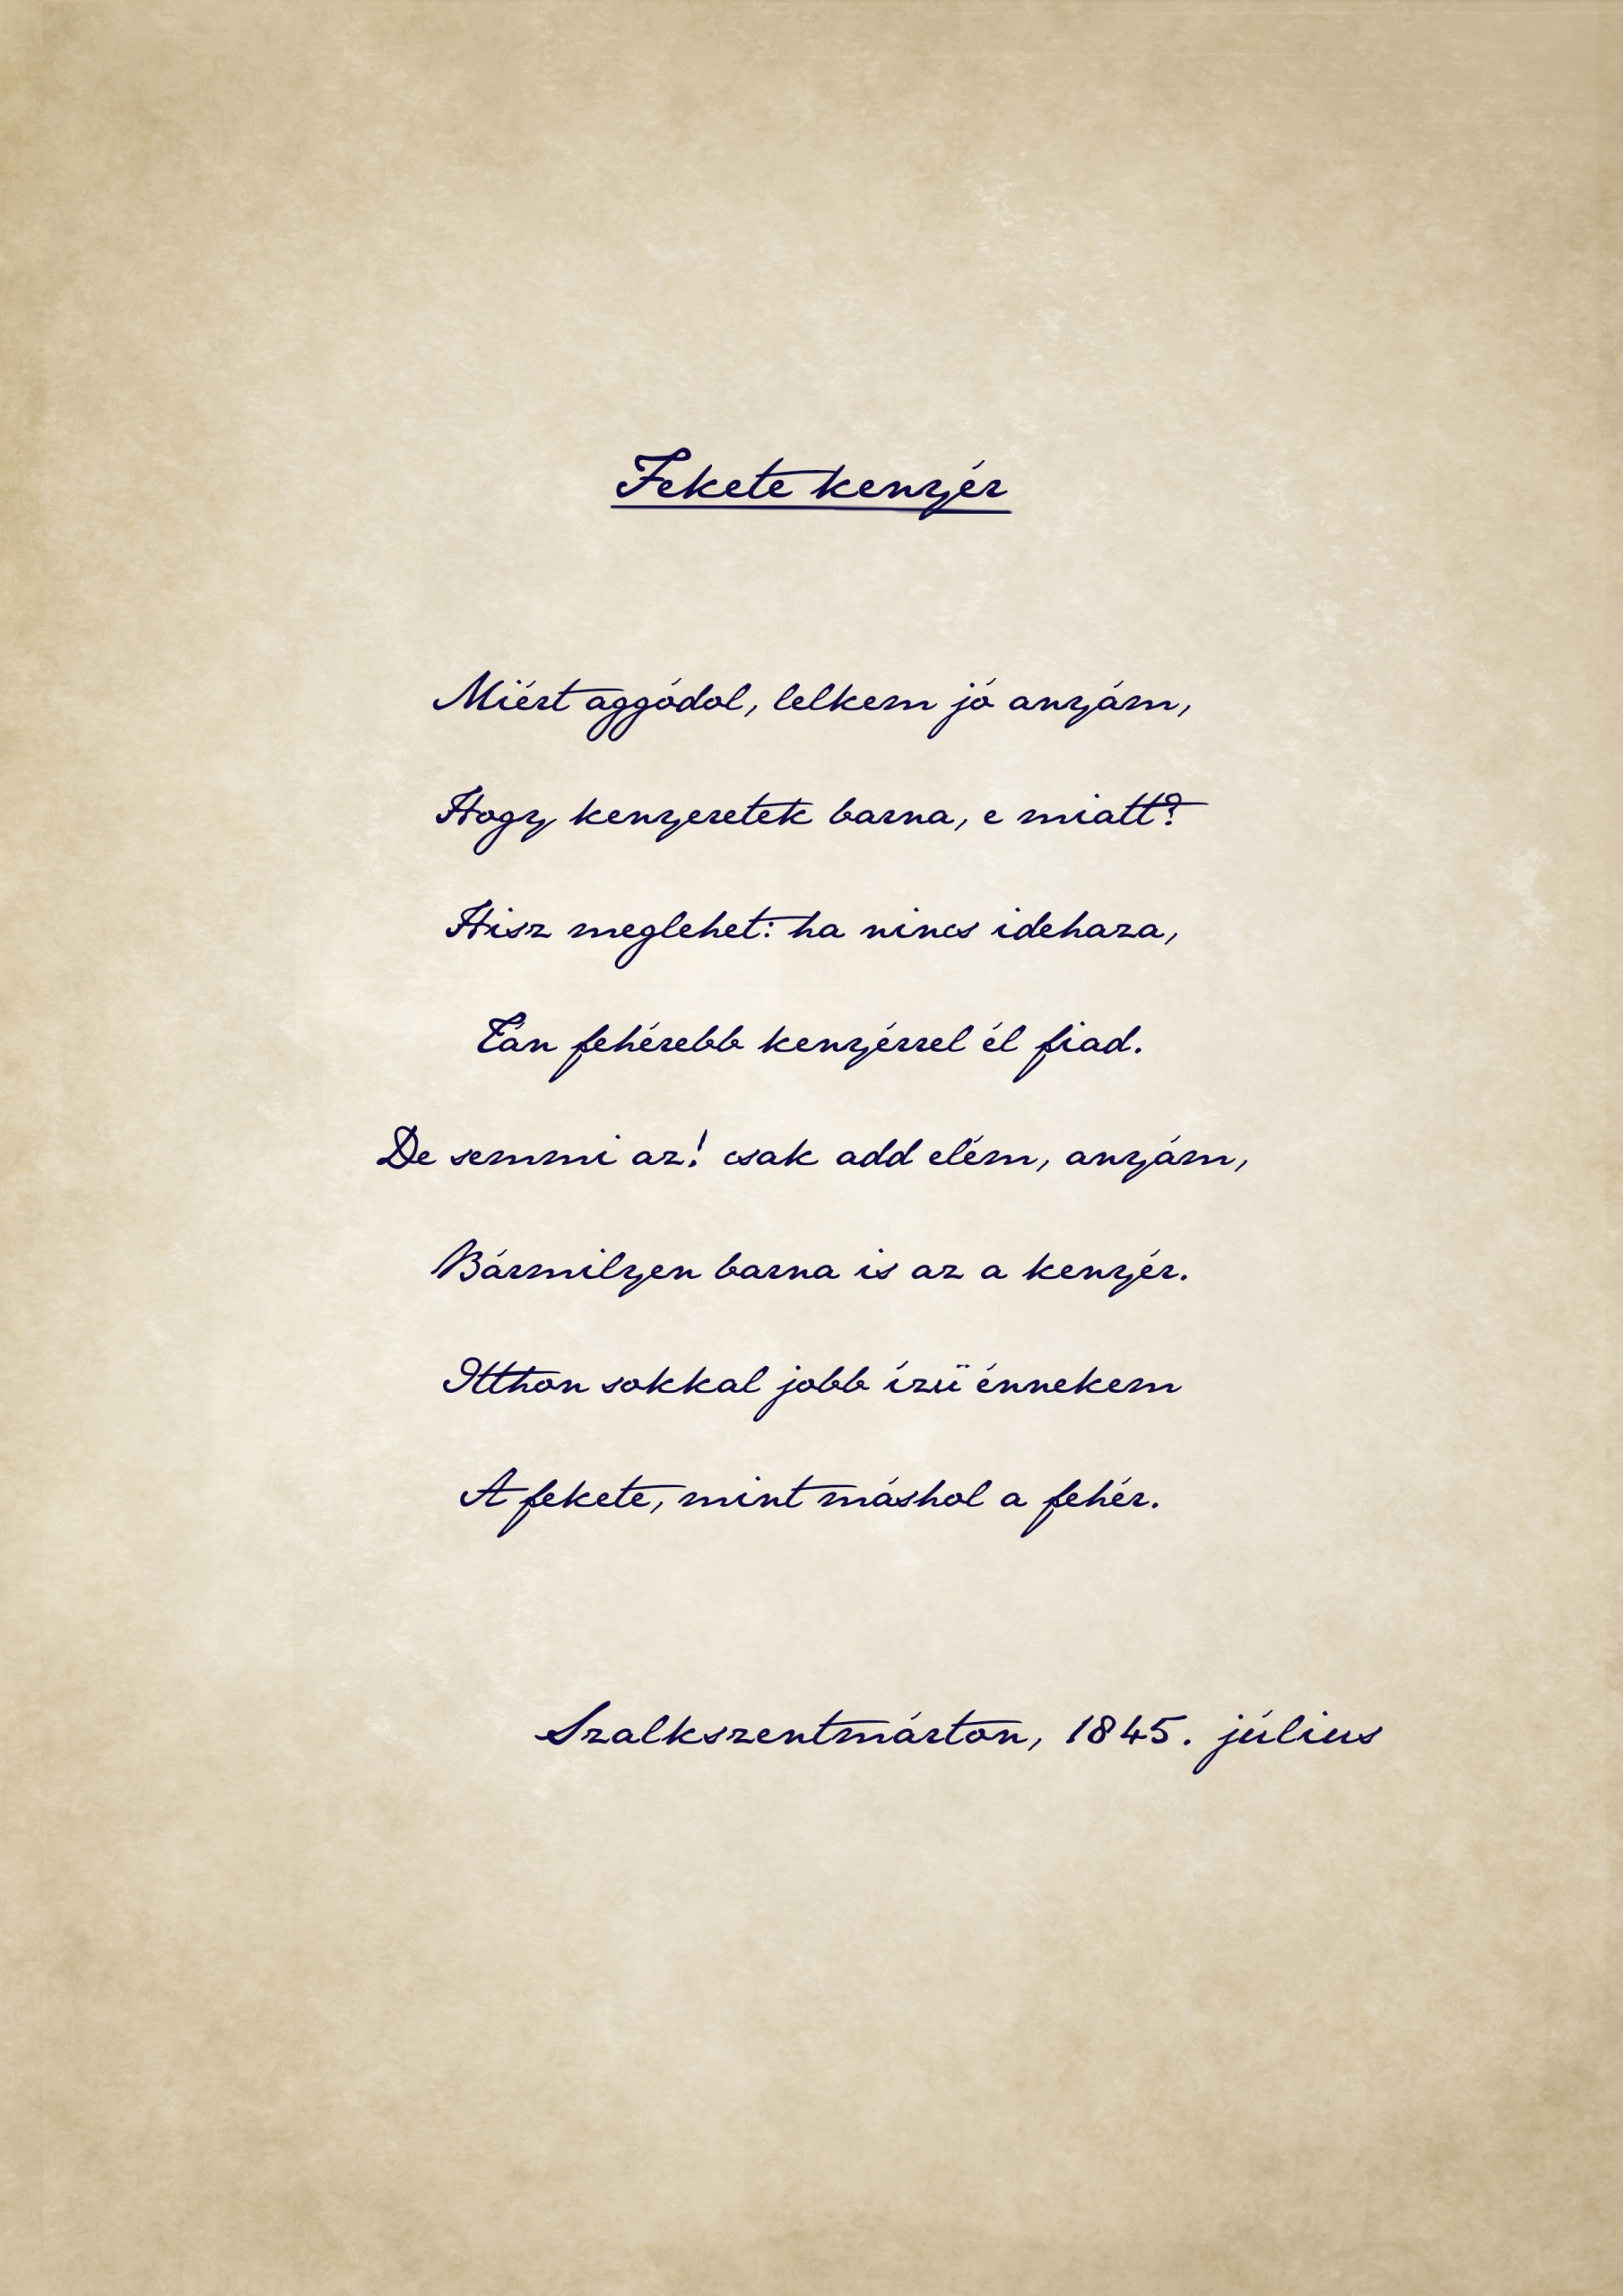 Fekete kenyér
Miért aggódol, lelkem jó anyám,
Hogy kenyeretek barna, e miatt?
Hisz meglehet: ha nincs idehaza,
Tán fehérebb kenyérrel él fiad.
De semmi az! csak add elém, anyám,
Bármilyen barna is az a kenyér.
Itthon sokkal jobb ízü énnekem
A fekete, mint máshol a fehér.
Szalkszentmárton, 1845. július